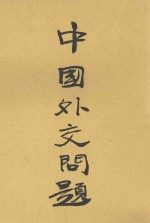 中國外交問題